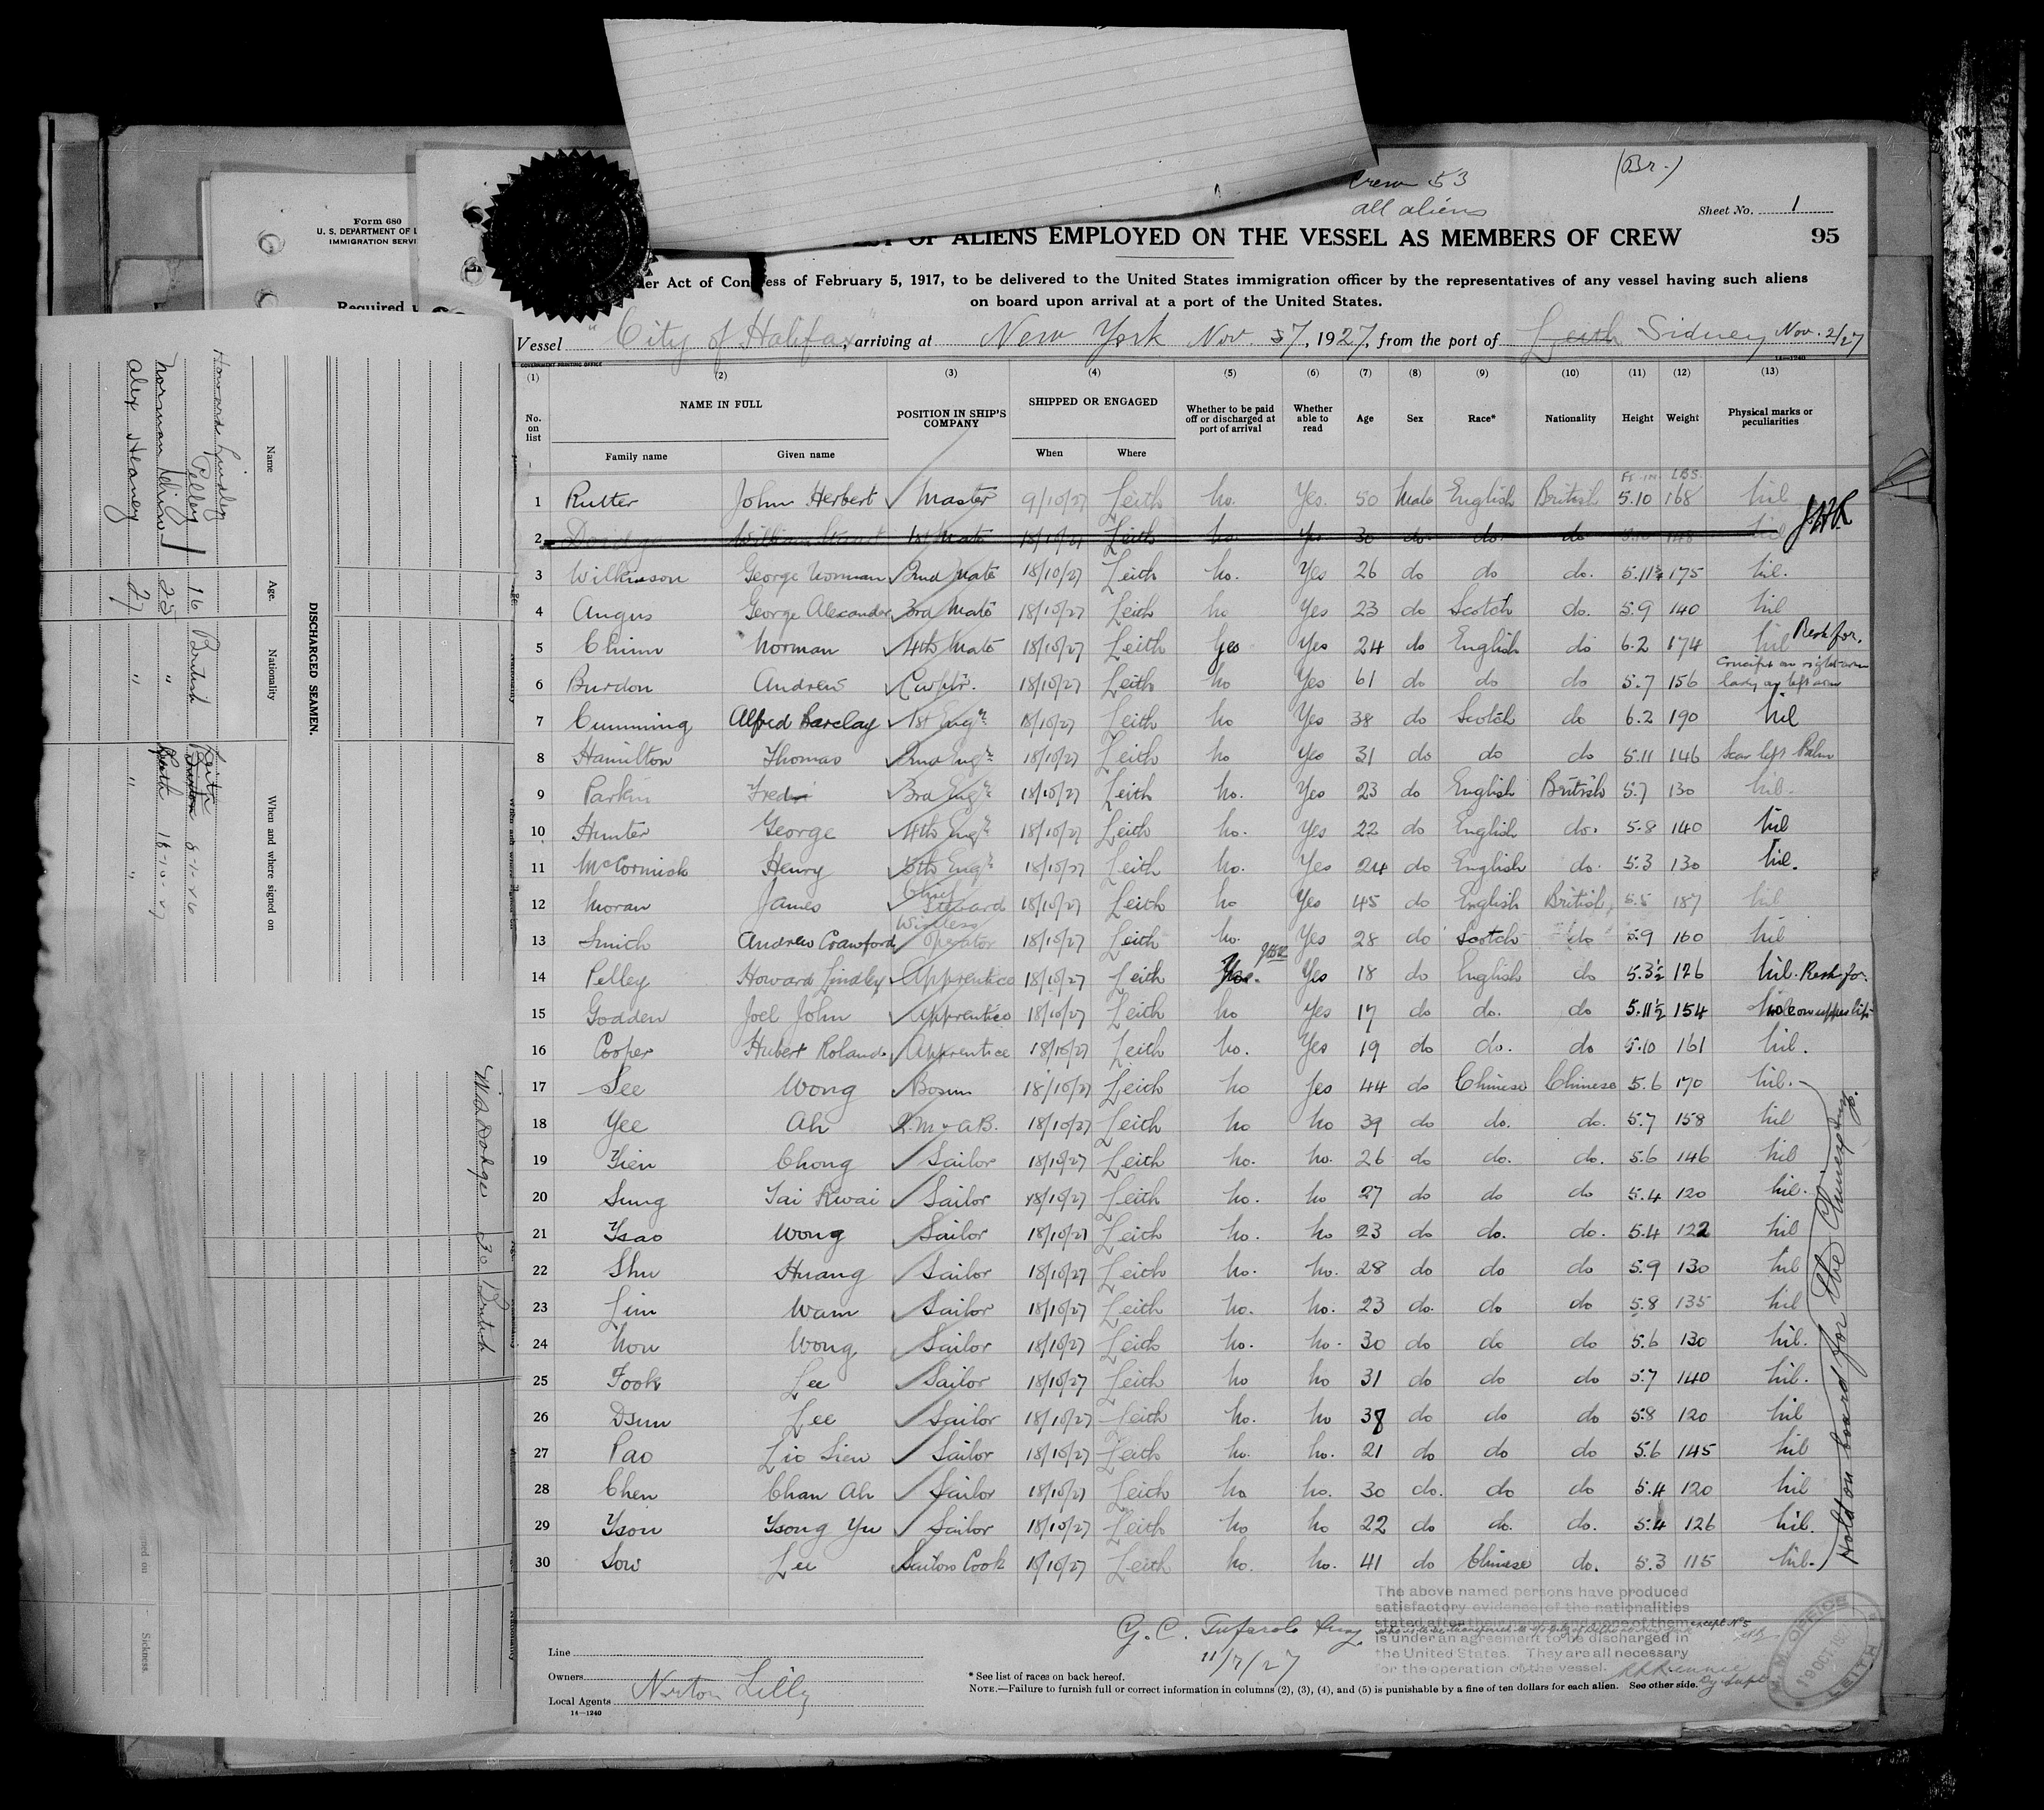 Crew 53
all aliens
(Br.)
Sheet No. 1
OF ALIENS EMPLOYED ON THE VESSEL AS MEMBERS OF CREW
95
Act of Congress of February 5, 1917, to be delivered to the United States immigration officer by the representatives of any vessel having such aliens
on board upon arrival at a port of the United States.
Vessel "City of Halifax", arriving at New York Nov. 7, 1927, from the port of Leith Sidney Nov. 2/27
GOVERNMENT PRINTING OFFICE 14—1240
(1) (2) (3) (4) (5) (6) (7) (8) (9) (10) (11) (12) (13)
No. on list NAME IN FULL Family name Given name POSITION IN SHIP'S COMPANY SHIPPED OR ENGAGED When Where Whether to be paid off or discharged at port of arrival Whether able to read Age Sex Race* Nationality Height Weight Physical marks or peculiarities
Ft. in. LBS.
1 Rutter John Herbert Master 9/10/27 Leith No. Yes. 50 Male English British 5.10 168 Nil
2 1st Mate 18/10/27 Leith No Yes 30 do do do Nil J.H.R.
3 Wilkinson George Norman 2nd Mate 18/10/27 Leith No. Yes 26 do do do. 5.11¾ 175 Nil.
4 Angus George Alexander 3rd Mate 18/10/27 Leith No Yes 23 do Scotch do. 5.9 140 Nil
5 Chinn Norman 4th Mate 18/10/27 Leith Yes Yes 24 do English do 6.2 174 Nil
6 Burdon Andrew Carptr. 18/10/27 Leith No Yes 61 do do do 5.7 156 Crucifix on right arm lady on left arm
7 Cumming Alfred Barclay 1st Engr. 18/10/27 Leith No Yes 38 do Scotch do 6.2 190 Nil
8 Hamilton Thomas 2nd Engr. 18/10/27 Leith No Yes 31 do do do 5.11 146 Scar left Palm
9 Parkin Fred 3rd Engr. 18/10/27 Leith No. Yes 23 do English British 5.7 130 Nil.
10 Hunter George 4th Engr. 18/10/27 Leith No. Yes 22 do English do. 5.8 140 Nil
11 McCormick Henry 5th Engr. 18/10/27 Leith No. Yes 24 do English do. 5.3 130 Nil.
12 Moran James Chief Steward 18/10/27 Leith No Yes 45 do English British 5.5 187 Nil
13 Smith Andrew Crawford Wireless Operator 18/10/27 Leith No. Yes 28 do Scotch do 5.9 160 Nil
14 Pelley Howard Lindley Apprentice 18/10/27 Leith Yes 18 do English do 5.3½ 126 Nil.
15 Godden Joel John Apprentice 18/10/27 Leith No Yes 17 do do. do 5.11½ 154 Mole on upper lip
16 Cooper Hubert Roland Apprentice 18/10/27 Leith No. Yes 19 do do. do 5.10 161 Nil.
17 See Wong Bosun 18/10/27 Leith No Yes 44 do Chinese Chinese 5.6 170 Nil.
18 Yee Ah Q.M. & A.B. 18/10/27 Leith No No 39 do do. do. 5.7 158 Nil
19 Yien Chong Sailor 18/10/27 Leith No. No. 26 do do. do. 5.6 146 Nil
20 Sung Tai Kwai Sailor 18/10/27 Leith No. No 27 do do do 5.4 120 Nil.
21 Tsao Wong Sailor 18/10/27 Leith No. No 23 do do. do. 5.4 122 Nil
22 Shu Huang Sailor 18/10/27 Leith No. No. 28 do do do 5.9 130 Nil
23 Lim Wam Sailor 18/10/27 Leith No. No. 23 do. do do 5.8 135 Nil
24 Now Wong Sailor 18/10/27 Leith No. No. 30 do do do 5.6 130 Nil.
25 Fook Lee Sailor 18/10/27 Leith No No 31 do do do 5.7 140 Nil.
26 Dsun Lee Sailor 18/10/27 Leith No. No 38 do do do 5.8 120 Nil
27 Pao Lio Sien Sailor 18/10/27 Leith No. No. 21 do do do 5.6 145 Nil
28 Chen Chan Ah Sailor 18/10/27 Leith No No. 30 do. do do 5.4 120 Nil
29 Tson Tsong Yu Sailor 18/10/27 Leith No No 22 do do. do. 5.4 126 Nil.
30 Sow Lee Sailors Cook 18/10/27 Leith No. No. 41 do Chinese do. 5.3 115 Nil.
Hold on board for the Chinese
The above named persons have produced
satisfactory evidence of the nationalities
stated after their names and none of them except No 5
is under an agreement to be discharged in
the United States. They are all necessary
for the operation of the vessel.
M.M. OFFICE
19 OCT
LEITH
11/7/27
Line
Owners
Local Agents Norton Lilly
14—1240
* See list of races on back hereof.
NOTE.—Failure to furnish full or correct information in columns (2), (3), (4), and (5) is punishable by a fine of ten dollars for each alien. See other side.
Form 680
U. S. DEPARTMENT OF L
IMMIGRATION SERVI
Required u
DISCHARGED SEAMEN.
Name Age. Nationality When and where signed on
Howard Lindley Pelley 16 British Leith 5-1-26
Norman Chinn 25 " Leith 18-10-27
Alex Heaney 27 " "
30 British
Sickness.